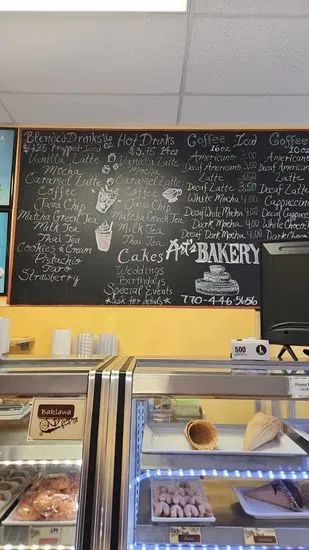 Blended Drinks 16oz
$4.25 Frapped Iced
Vanilla Latte
Mocha
Caramel Latte
Coffee
Java Chip
Matcha Green Tea
Milk Tea
Thai Tea
Cookies & Cream
Pistachio
Taro
Strawberry
Hot Drinks
$3.75 12oz
Vanilla Latte
Mocha
Caramel Latte
Coffee
Java Chip
Matcha Green Tea
Milk Tea
Thai Tea
Cakes
Weddings
Birthdays
Special Events
*ask for details*
Coffee Iced
16oz
Americano 3.00
Decaf Americano 3.00
Latte 3.50
Decaf Latte 3.50
White Mocha 4.00
Decaf White Mocha 4.00
Dark Mocha 4.00
Decaf Dark Mocha 4.00
Art's BAKERY
770-446-5656
Coffee
10oz
Americano
Decaf Americano
Latte
Decaf Latte
Cappuccino
Decaf Cappuccino
White Mocha
Decaf White
Dark Mocha
500
L
Baklawa